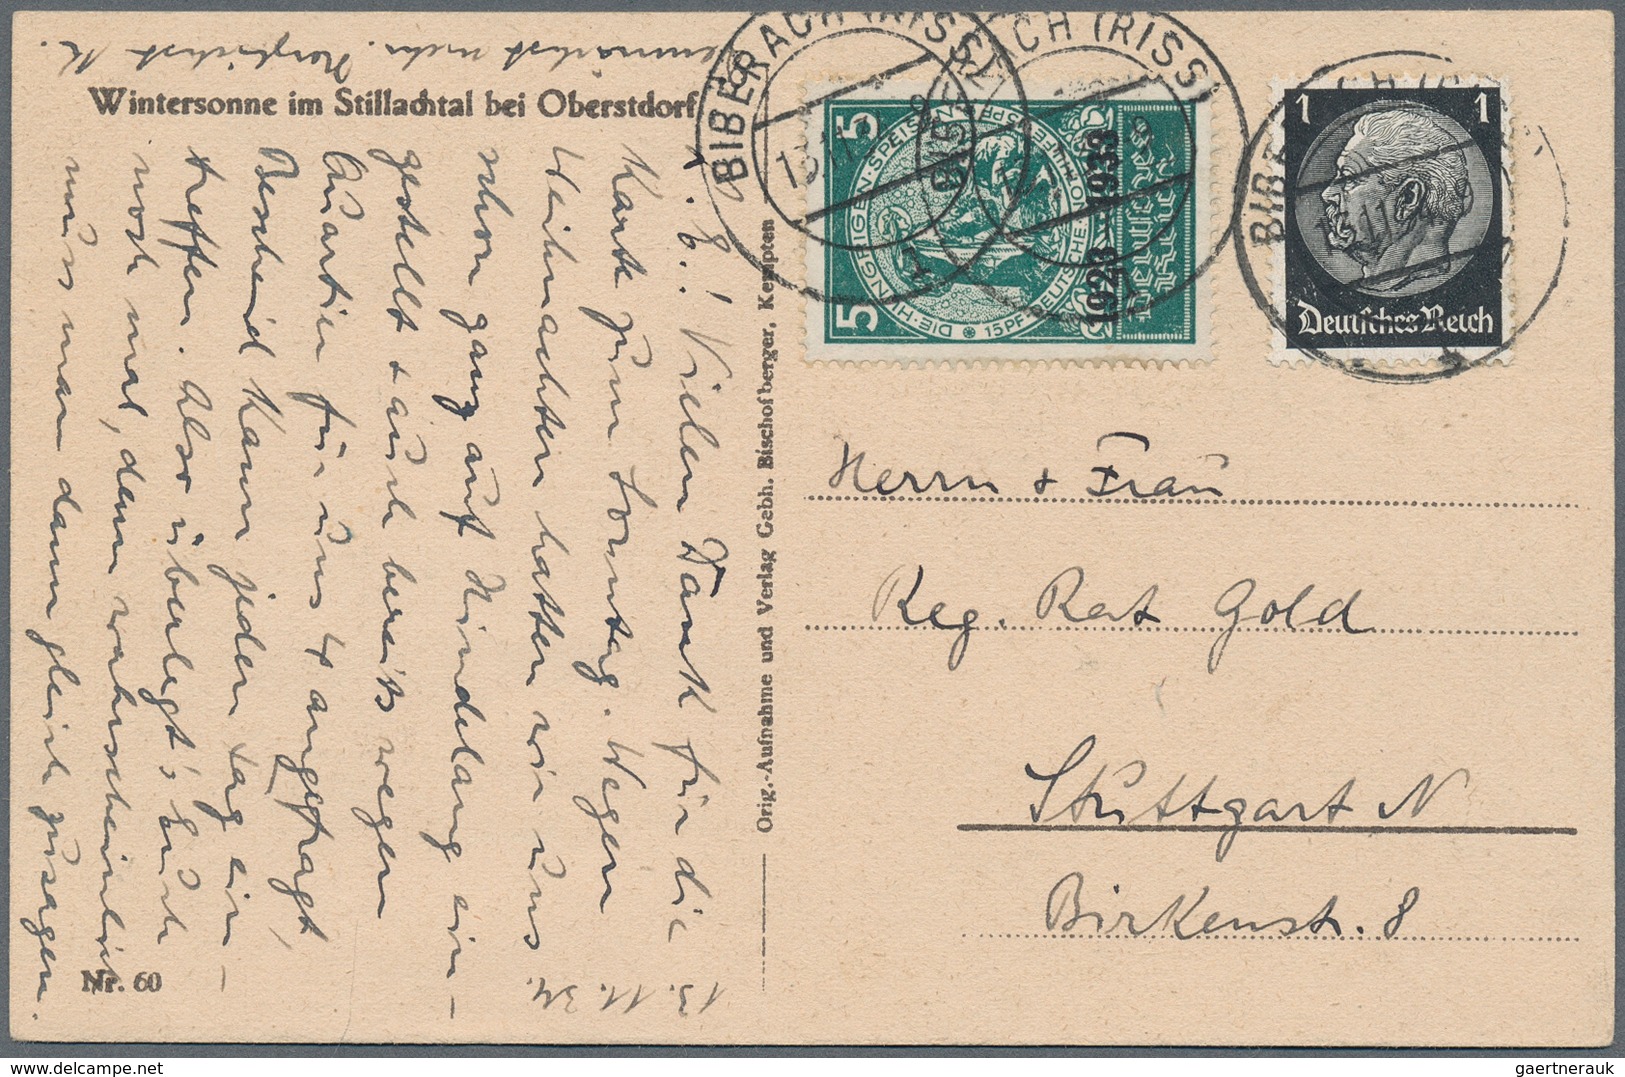 Wintersonne im Stillachtal bei Oberstdorf
13.11.34.
L. E.! Vielen Dank für die
Karte zum Sonntag. Wegen
Weihnachten hatten wir uns
schon ganz auf Hindelang ein-
gestellt + auch bereits wegen
Quartier für uns 4 angefragt,
Bescheid kann jeden Tag ein-
treffen. Also überlegt's Euch
noch mal, denn wahrscheinlich
muss man dann gleich zusagen.
mehr. Herzlichst
Nr. 60
Orig.-Aufnahme und Verlag Gebh. Bischofberger, Kempten
BIBERACH (RISS)
BIBERACH (RISS)
5 5
DIE HH·EINIGHRIGEN·SPEISEN
15PF·DEUTSCHE
1923–1933
Deutsches Reich
1 1
Deutsches Reich
Herrn + Frau
Reg. Rat Gold
Stuttgart N
Birkenstr. 8
gaertnerauk